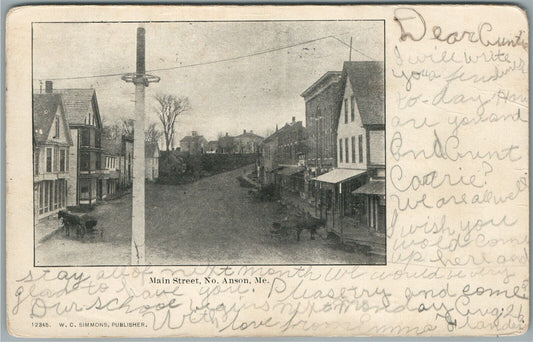 Dear Aunt
I will write
you a few
to-day. How
are you and
Aunt
Carrie?
We are all well
I wish you
would come
up here and
stay all of next month. We would be very
glad to have you. Please try and come.
Our school begins next Monday Aug. 26
With love from Emma Flanders
Main Street, No. Anson, Me.
12345. W. C. SIMMONS, PUBLISHER.